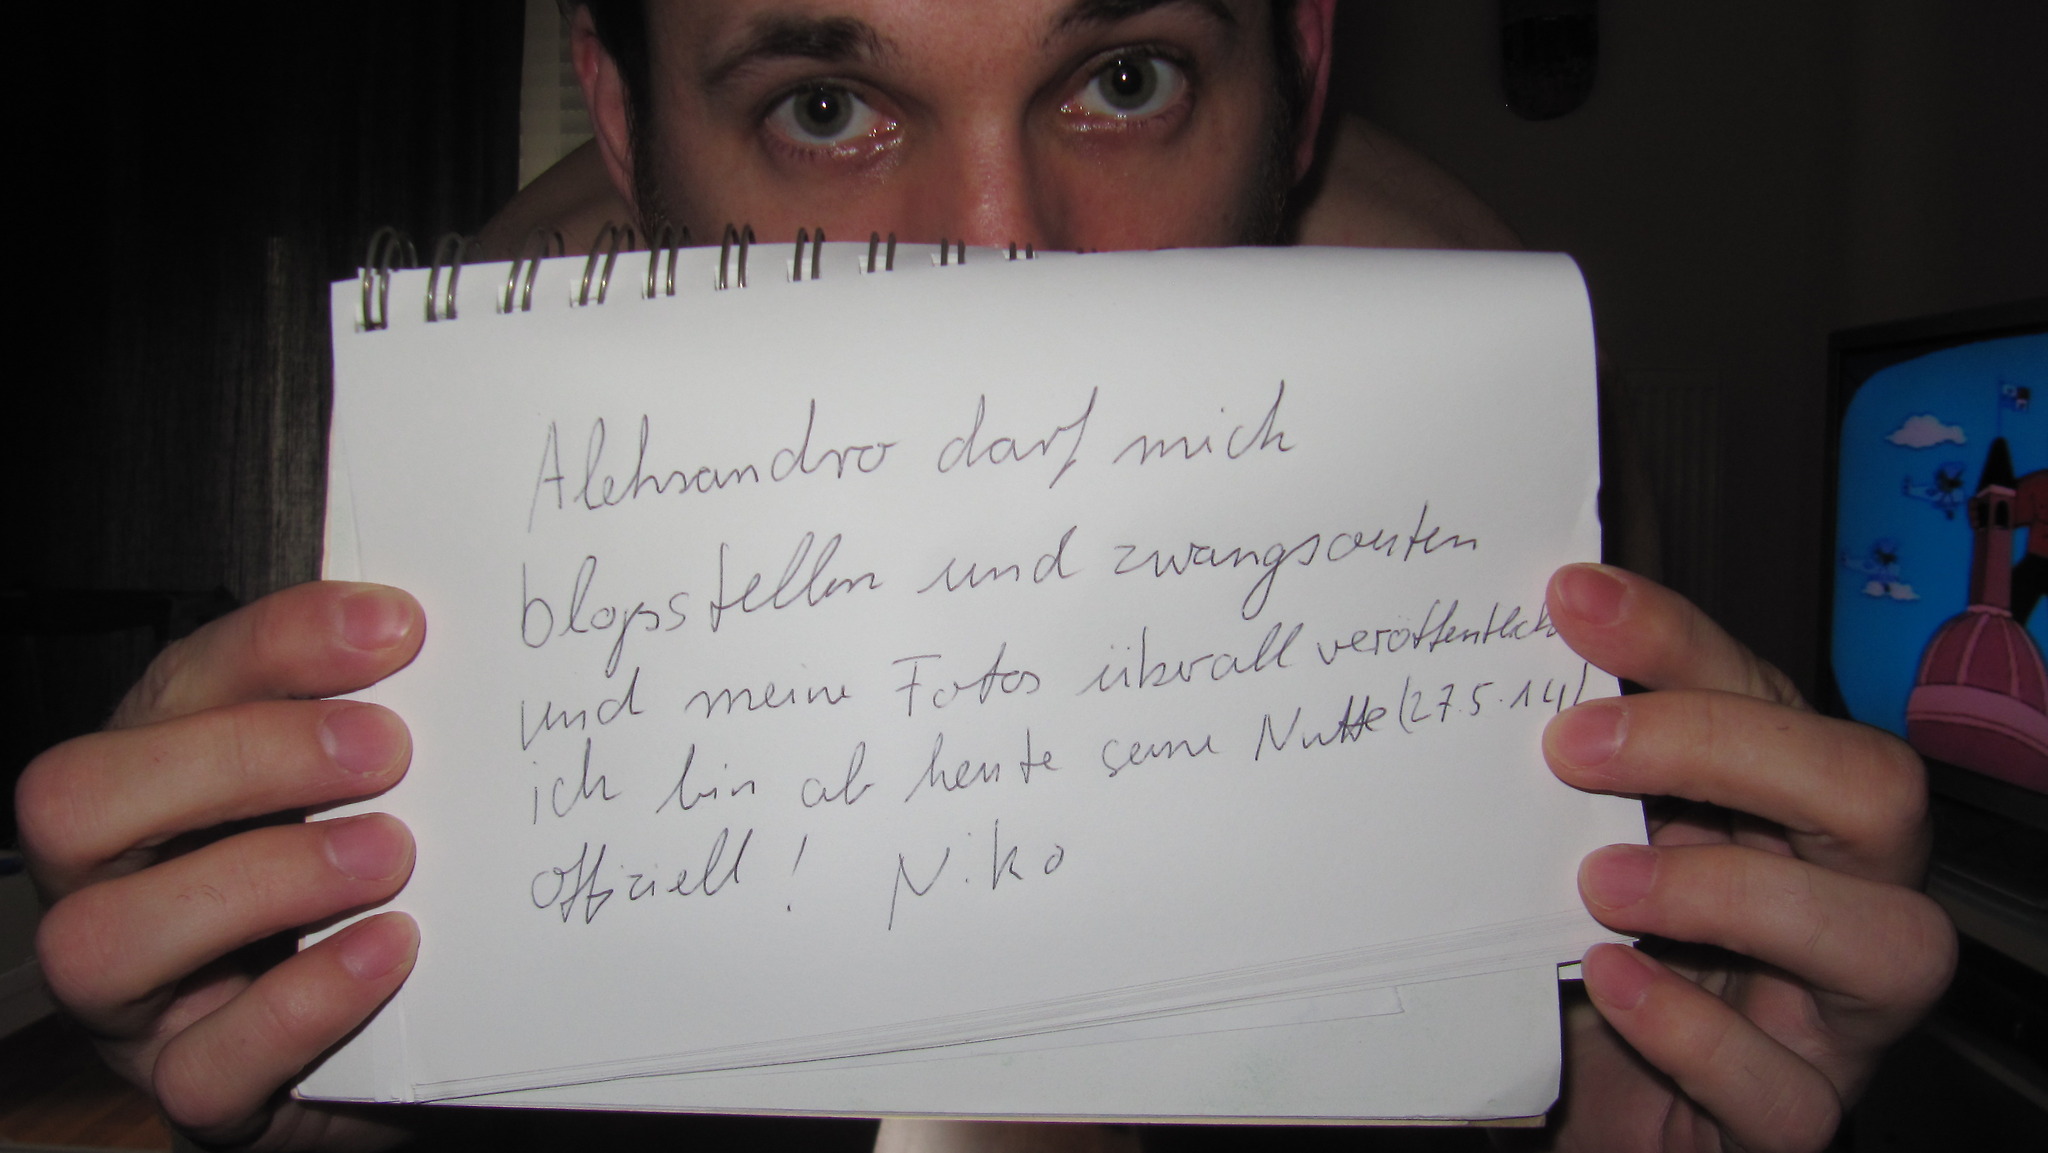 Aleksandro darf mich
blopsstellen und zwangsouten
und meine Fotos überall veröffentlichen
ich bin ab heute seine Nutte (27.5.14)
offiziell! Niko